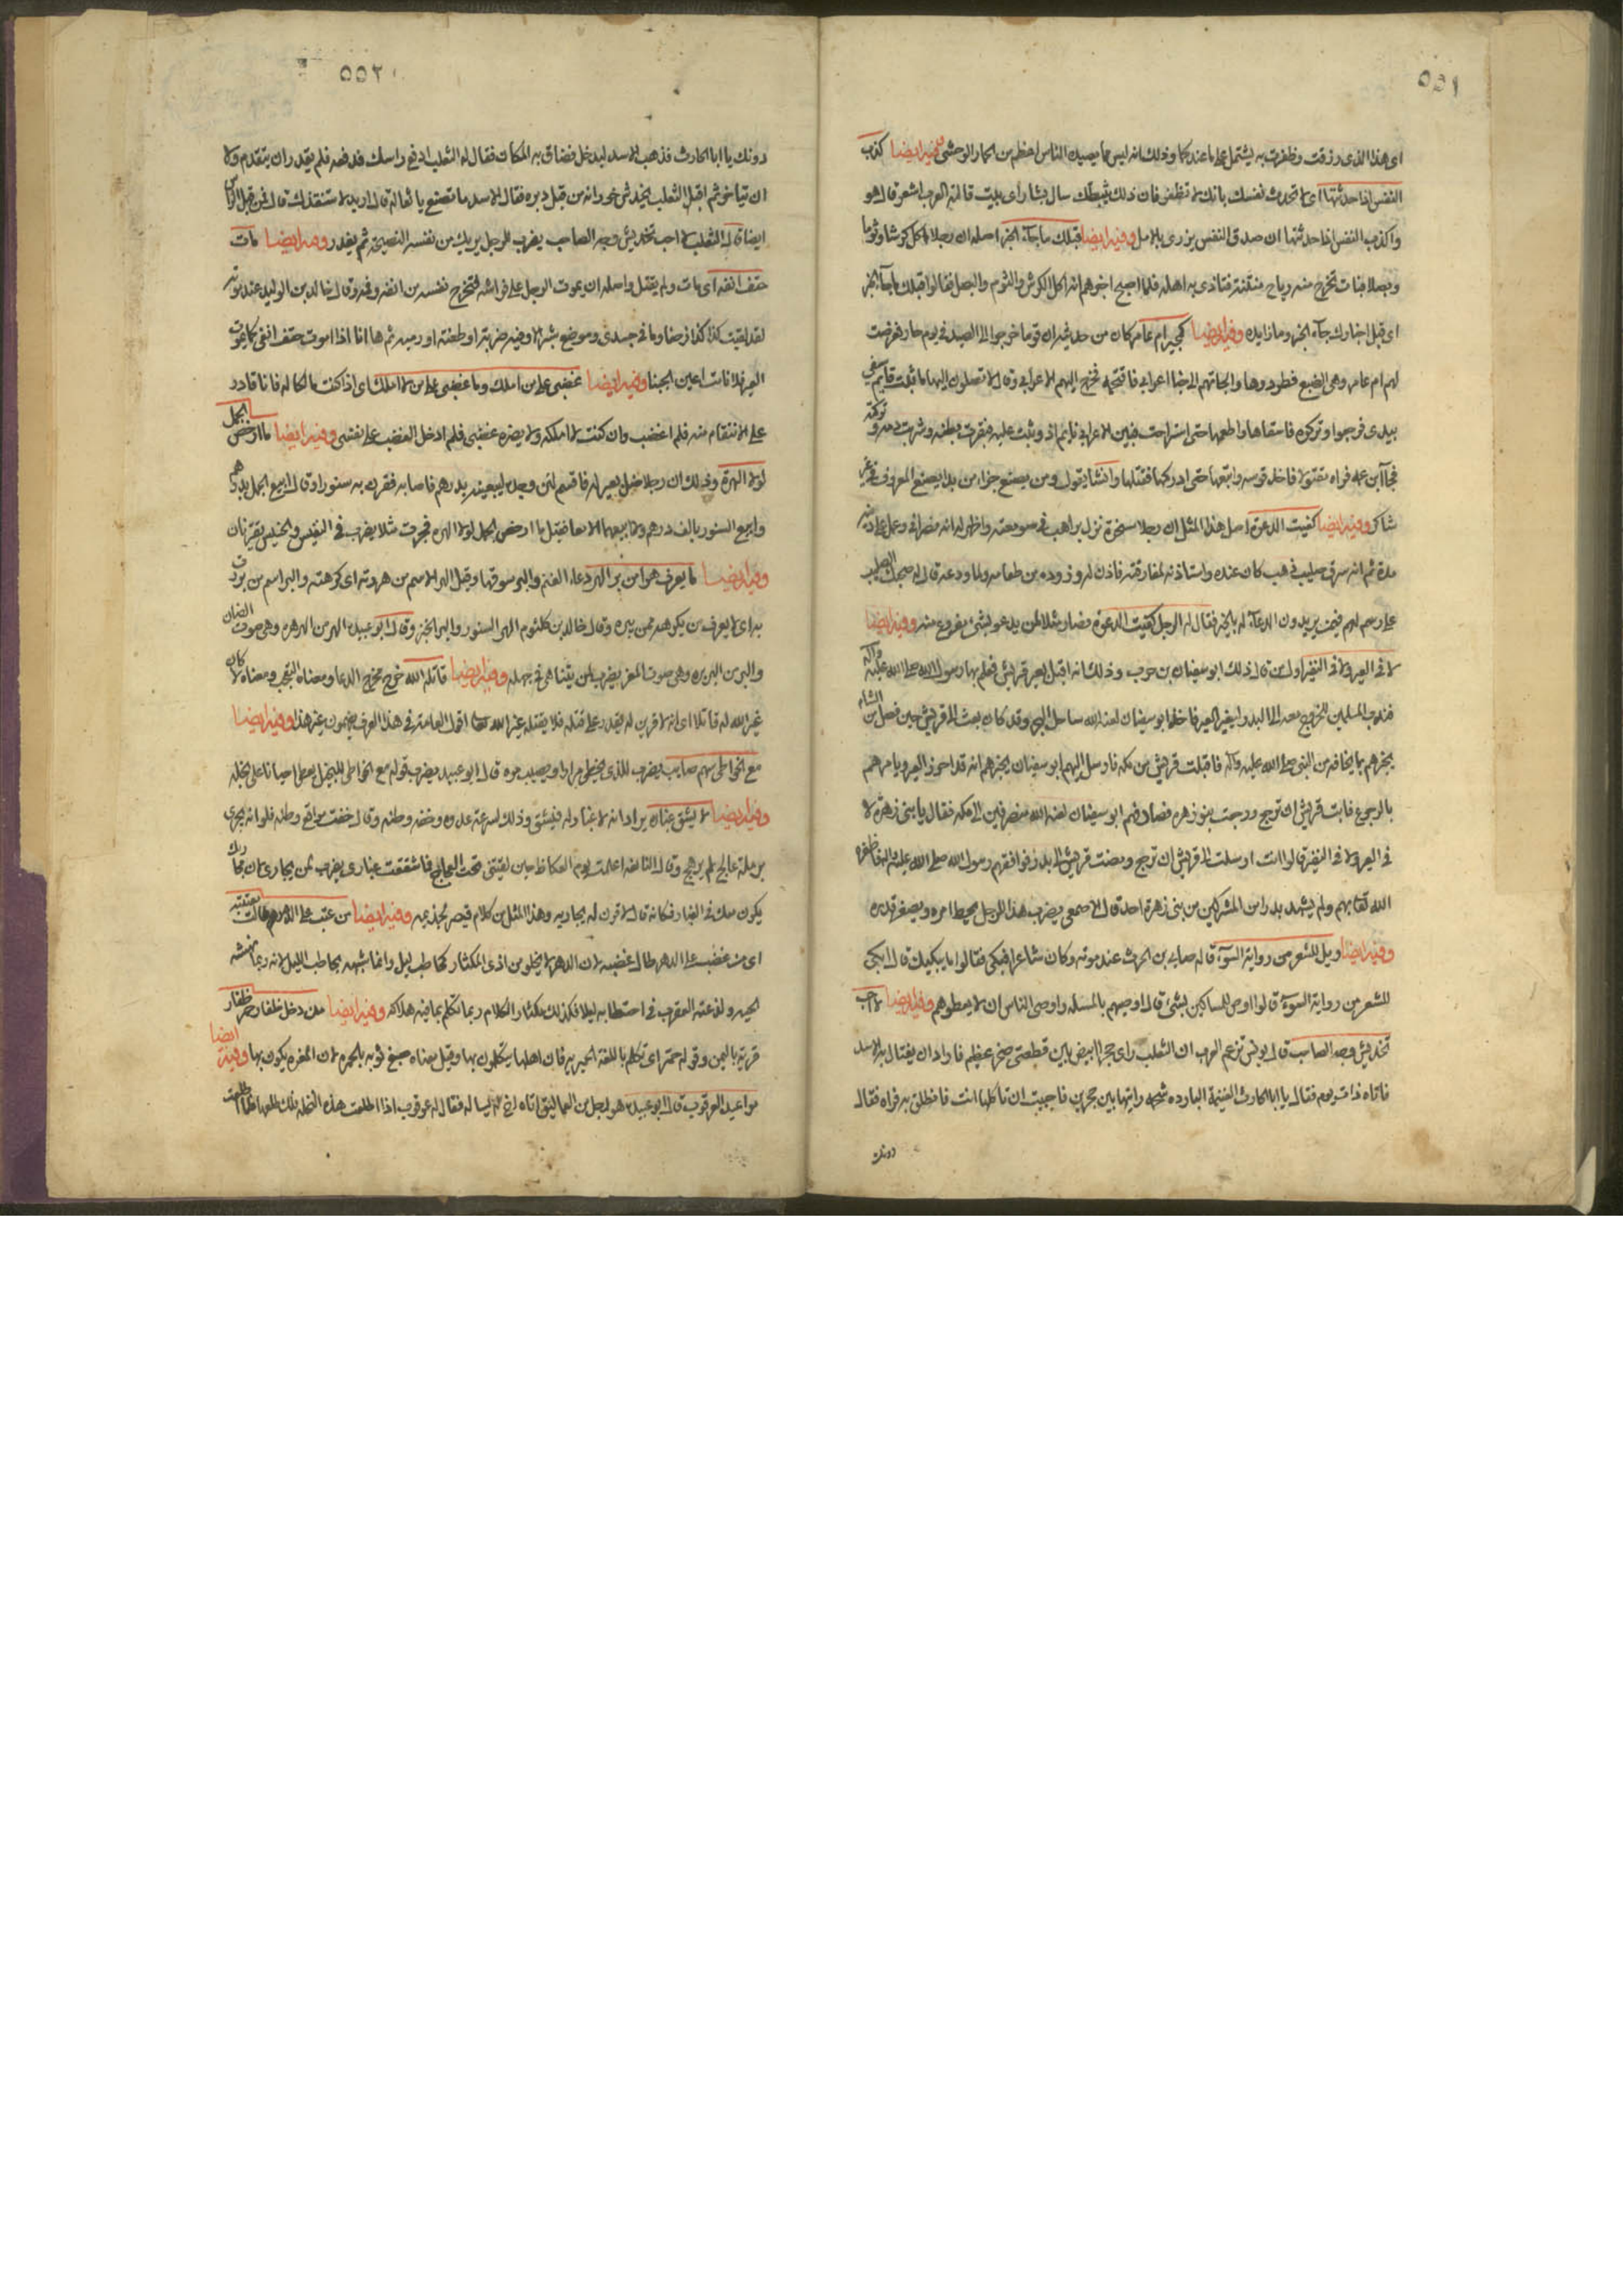 ٥٥١
اى هذا الذى رزقت وظفرت به يشتمل على ما عندكما وذلك انه ليس مما يصيده الناس اعظم من الحمار الوحشى وفيه ايضا كذب
النفس اذا حدثتها اى لا تحدث نفسك بانك لا تظفر فان ذلك يثبطك سال بشار اى بيت قالته العرب اشعر قال هو
واكذب النفس اذا حدثتها ان صدق النفس يزرى بالامل وفيه ايضا قبلك ما جآء الخبر اصله ان رجلا اكل كوشا وثوما
وبصلا فبات تخرج منه رياح منتنة فتاذى به اهله فلما اصبح اخبرهم انه اكل الكوش والثوم والبصل فقالوا قبلك ما جآء الخبر
اى قبل اخبارك جآء الخبر وما زايده وفيه ايضا كمجير ام عامر كان من حديثه ان قوما خرجوا الى الصيد فى يوم حار فعرضت
لهم ام عامر وهى الضبع فطردوها والجاتهم الى خبا اعرابى فاقتحمه فخرج اليهم الاعرابى وقال لا تصلون اليها ما ثبت قايم سيفى
بيدى فرجعوا وتركوه فاسقاها واطعمها حتى استراحت فبين الاعرابى نايم اذ وثبت عليه فبقرت بطنه وشربت دمه وتركته
فجآ ابن عمه فراه مقتولا فاخذ قوسه واتبعها حتى ادركها فقتلها وانشا يقول ومن يصنع جزاء من بدا يصنع المعروف فى غير
شاكر وفيه ايضا كفيت الدعوة اصل هذا المثل ان رجلا سخرة نزل براهب فى صومعته واظهر له انه نصرانى وعمل على دينه
مدة ثم انه سرق صليب ذهب كان عنده واستاذنه لمفارقته فاذن له وزوده من طعامه ولما ودعه قال له صحبك الصليب
على رسم لهم فيمن يريدون الدعآء له بالخير فقال له الرجل كفيت الدعوة فصار مثلا لمن يدعو بشىء مفروغ منه وفيه ايضا
لا فى العير ولا فى النفير اول من قال ذلك ابو سفيان بن حرب وذلك انه اقبل بعير قريش فعلم بها رسول الله صلى الله عليه وآله
فندب المسلمين للخروج معه الى البدر لبغير العير فاخذ ابو سفيان لعنه الله ساحل البحر وقد كان بعث الى قريش حين فصل من الشام
يخبرهم بما يخافه من النبى صلى الله عليه وآله فاقبلت قريش من مكه فارسل اليهم ابو سفيان يخبرهم انه قد احوز العير ويامرهم
بالرجوع فابت قريش ان ترجع ورجعت بنو زهره فصادفهم ابو سفيان لعنه الله منصرفين الى مكه فقال يا بنى زهرة لا
فى العير ولا فى النفير قالوا انت ارسلت الى قريش ان ترجع ومضت قريش الى بدر فوافقهم رسول الله صلى الله عليه وآله فاظفره
الله تعا بهم ولم يشهد بدرا من المشركين من بنى زهرة احد قال الاصمعى يضرب هذا للرجل يحط امره ويصغر قدره
وفيه ايضا ويل للشعر من رواية السوآء قاله صابى بن الحرث عند موته وكان شاعرا فبكى فقالوا ما يبكيك قال ابكى
للشعر من رواية السوء قالوا اوص للمساكين بشىء قال اوصيهم بالمسئله واوصى الناس ان لا يعطوهم وفيه ايضا لا احب
تخديش وجه الصاحب قال يونس تزعم العرب ان الثعلب راى حجرا ابيض بين قطعتى صخر عظيم فاراد ان يغتال به الاسد
فاتاه ذات يوم فقال يا ابا الحارث الغنيمة البارده شحمة رايتها بين حجرين فاحببت ان تاكلها انت فانطلق به فراه فقال
دونك
٥٥٢
دونك يا ابا الحارث فذهب الاسد ليدخل فضاق به المكان فقال له الثعلب ادفع راسك فدفعه فلم يقدر ان يتقدم ولا
ان يتاخر ثم اقبل الثعلب يخدش خورانه من قبل دبره فقال الاسد ما تصنع يا ثعالة قال اريد لاستنقذك قال فمن قبل الراس
ايضا قال الثعلب لا احب تخديش وجه الصاحب يضرب للرجل يريك من نفسه النصيحة ثم يغدر وفيه ايضا مات
حتف انفه اى مات ولم يقتل واصله ان يموت الرجل على فراشه فتخرج نفسه من انفه وفمه وقال خالد بن الوليد عند موته
لقد لقيت كذا كذا زحفا وما فى جسدى وموضع شبر الا وفيه ضربة او طعنه او رميه ثم ها انا اذا اموت حتف انفى كما يموت
العير فلا نامت اعين الجبنا وفيه ايضا غضبى على من املك وما غضبى على من لا املك اى اذا كنت مالكا له فانا قادر
على الانتقام منه فلم اغضب وان كنت لا املكه ولا يضره غضبى فلم ادخل الغضب على نفسى وفيه ايضا ما ارخص الجمل
لولا الهرة وذلك ان رجلا ضل بعير له فاقسم لئن وجده ليبيعنه بدرهم فاصابه فقرن به سنورا وقال ابيع الجمل بدرهم
وابيع السنور بالف درهم ولا ابيعهما الا معا فقيل ما ارخص الجمل لولا الهره فجرت مثلا يضرب فى النفيس والخسيس يقترنان
وفيه ايضا ما يعرف هرا من بر الهر دعاء الغنم والبر سوقها وقيل الهر الاسم من هررته اى كرهته والبر اسم من بررت
به اى لا يعرف من يكرهه ممن يبره وقال خالد بن كلثوم الهر السنور والبر الجرذ وقال ابو عبيده الهر من الهرهره وهى صوت الضان
والبر من البربره وهى صوت المعز يضرب لمن يتناهى فى جهله وفيه ايضا قاتله الله خرج مخرج الدعا ومعناه التعجب ومعناه لا كان
غير الله له قاتلا اى انه لا قرين له يقدر على قتله فلا يقتله غير الله تعا اقول العامة فى هذا العرف يفهمون غير هذا وفيه ايضا
مع الخواطى سهم صايب يضرب للذى يخطى مرارا ويصيب مره قال ابو عبيد يضرب قوله مع الخواطى للبخيل يعطى احيانا على بخله
وفيه ايضا لا يشق غباره يراد انه لا غبار له فيشق وذلك لسرعة عدوه وخفه وطئه وقال خفت مواقع وطئه فلو انه يجرى
برملة عالج لم يرهج وقال النابغه اعلمت يوم العكاظ حين لقيتنى تحت العجاج فما شققت غبارى يضرب لمن يجارى لان مجاريك
يكون معك فى الغبار فكانه قال لا قرن له يجاريه وهذا المثل من كلام قيصر لجذيمه وفيه ايضا من عتب على الدهر طالت معتبته
اى من غضب على الدهر طال غضبه لان الدهر لا يخلو من اذى المكثار كحاطب ليل وانما شبهه بحاطب الليل لانه ربما نهشته
الحيه ولذعته العقرب فى احتطابه ليلا فكذلك مكثار الكلام ربما تكلم بما فيه هلاكه وفيه ايضا من دخل ظفار حمر
قرية باليمن وقوله حمر اى تكلم باللغة الحميريه فان اهلها يتكلمون بها وقيل معناه صبغ ثوبه بالحمره لان المغره يكون بها وفيه ايضا
مواعيد العرقوب قال ابو عبيد هو رجل من العماليق اتاه اخ له يساله فقال له عرقوب اذا اطلعت هذه النخله فلك طلعها فلما اطلعت